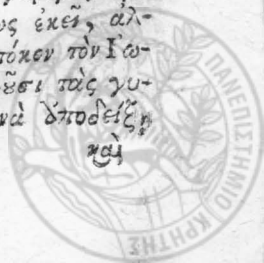 ους ἐκεῖ, ἀλ-
πόκεν τὸν Ἰω-
οῦσι τὰς γυ-
νὰ ὑποδείξῃ
καὶ
ΠΑΝΕΠΙΣΤΗΜΙΟ ΚΡΗΤΗΣ